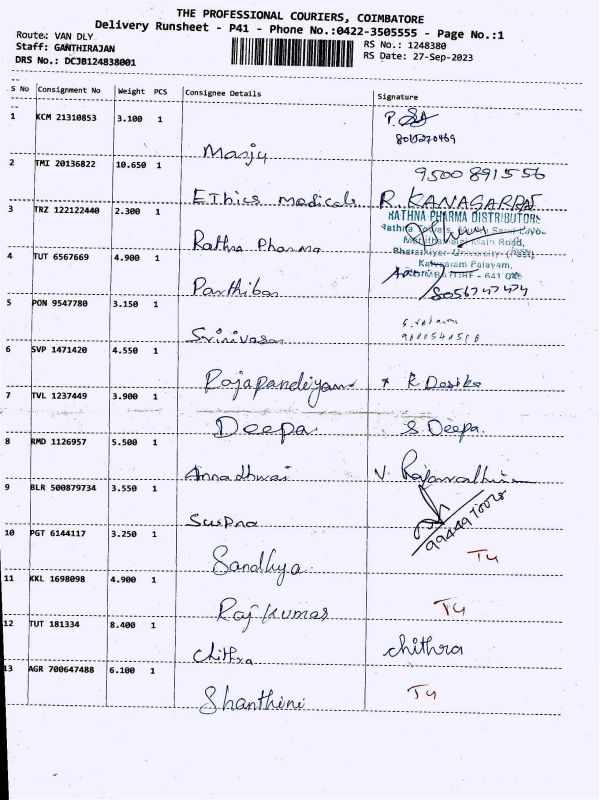 THE PROFESSIONAL COURIERS, COIMBATORE
Delivery Runsheet - P41 - Phone No.:0422-3505555 - Page No.:1
Route: VAN DLY
Staff: GANTHIRAJAN
DRS No.: DCJB124838001
RS No.: 1248380
RS Date: 27-Sep-2023
S No Consignment No Weight PCS Consignee Details Signature
1 KCM 21310853 3.100 1
Manju
2 TMI 20136822 10.650 1 9500891556
Ethics medicals R. KANAGARAJ
3 TRZ 122122440 2.300 1
RATHNA PHARMA DISTRIBUTORS
Rathna Pharma
Road,
Bharathiyar University (Post)
4 TUT 6567669 4.900 1 Palayam,
Parthiban
5 PON 9547780 3.150 1
Srinivasan
6 SVP 1471420 4.550 1
Rajapandiyan
7 TVL 1237449 3.900 1
Deepa S Deepa.
8 RMD 1126957 5.500 1
Annadhurai V.
9 BLR 500879734 3.550 1
10 PGT 6144117 3.250 1
Sandhya
11 KKL 1698098 4.900 1
Raj Kumar
12 TUT 181334 8.400 1
Chithra chithra
13 AGR 700647488 6.100 1
Shanthini